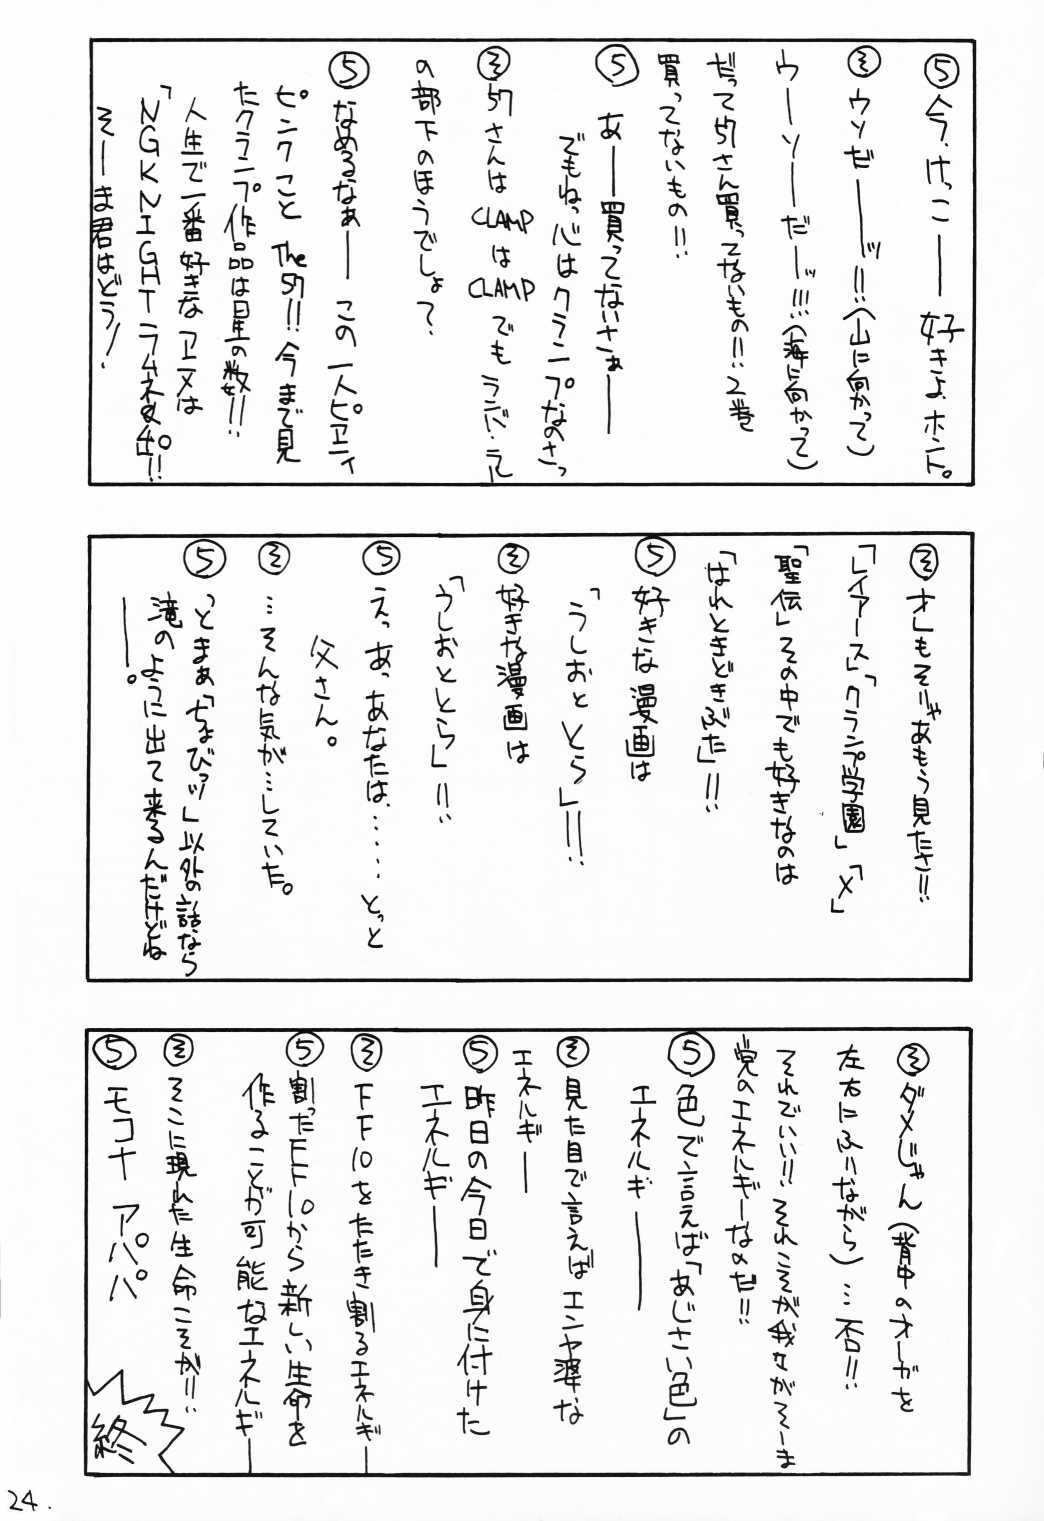 ⑤今、けっこ――好きよホント。
㋞ウソだ――ッ!!(山に向かって)
ウーソーーだーッ!!!(海に向かって)
だって57さん買ってないもの!!2巻
買ってないもの!!
⑤あ――買ってないさぁ――
でもねっ心はクランプなのさっ
㋞57さんは CLAMP は CLAMP でも ランバ・ラル
の部下のほうでしょ?
⑤なめるなぁ―― この一人ピエニィ
ピンクこと The57!! 今まで見
たクランプ作品は星の数!!
人生で一番好きなアニメは
「NGKNIGHTラムネ&40!!
そーま君はどう!
㋞オレもそりゃあもう見たさ!!
「レイアース」「クランプ学園」「X」
「聖伝」その中でも好きなのは
「はれときどきぶた」!!
⑤好きな漫画は
「うしおととら」!!!
㋞好きな漫画は
「うしおととら」!!
⑤えっあっあなたは、・・・・とっと
父さん。
㋞…そんな気が…していた。
⑤っとまぁ「ちょびっツ」以外の話なら
滝のように出て来るんだけどね
――。
㋞ダメじゃん(背中のオーガを
左右にふりながら)…否!!
それでいい!!それこそが我々がそーま
党のエネルギーなのだ!!
⑤色で言えば「あじさい色」の
エネルギ――
㋞見た目で言えばエンヤ婆な
エネルギー
⑤昨日の今日で身に付けた
エネルギ――
㋞FF10をたたき割るエネルギ――
⑤割ったFF10から新しい生命を
作ることが可能なエネルギ――
㋞そこに現れた生命こそが!!
⑤モコナ アパパ
終
24.